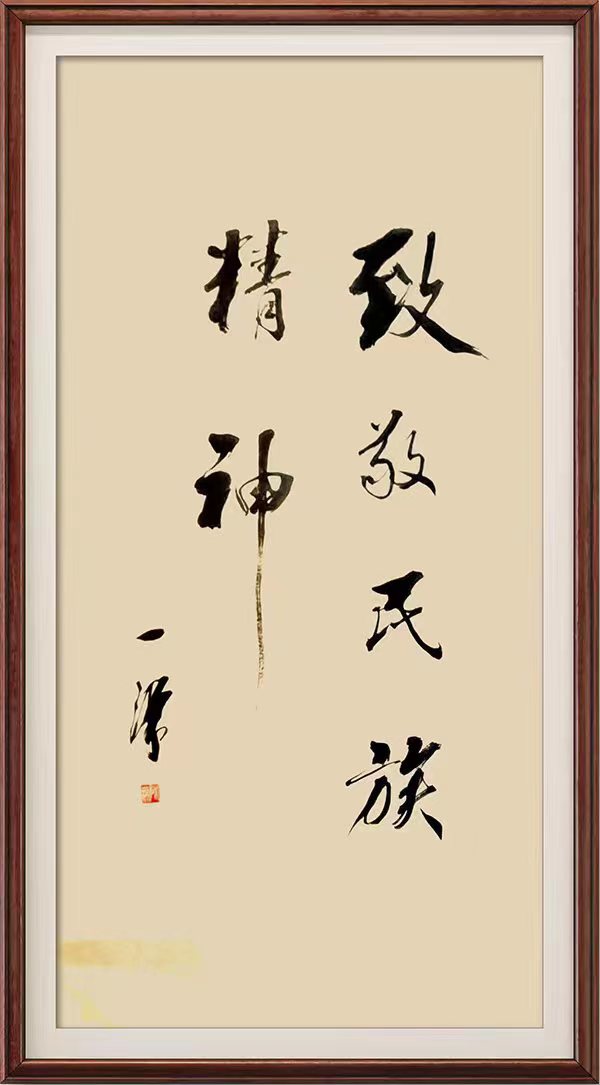 致敬民族
精神
一梁